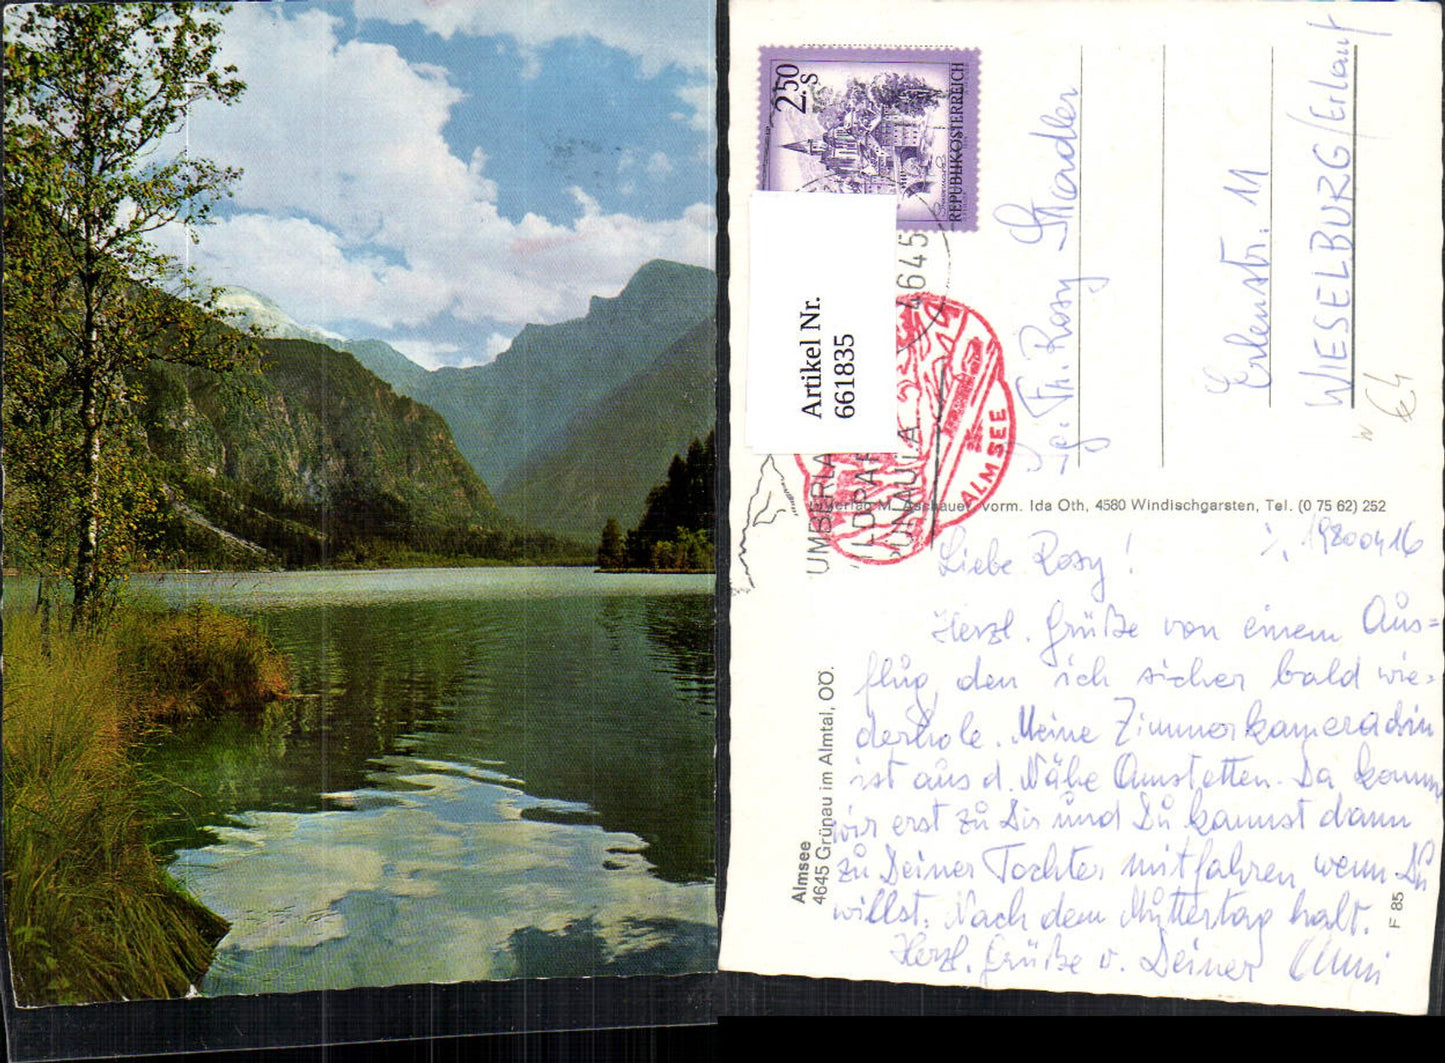 2.50
S
REPUBLIK ÖSTERREICH
4645
Artikel Nr.
661835
ALMSEE
Th. Rosy Stadler
Erlenstr. 11
WIESELBURG/Erlauf
Verlag M. Aschauer, vorm. Ida Oth, 4580 Windischgarsten, Tel. (0 75 62) 252
Almsee
4645 Grünau im Almtal, OÖ.
F 85
19800416
Liebe Rosy!
Herzl. Grüße von einem Aus=
flug, den ich sicher bald wie=
derhole. Meine Zimmerkameradin
ist aus d. Nähe Amstetten. Da komm
wir erst zu Dir und Du kannst dann
zu Deiner Tochter mitfahren wenn Du
willst. Nach dem Muttertag halt.
Herzl. Grüße v. Deiner